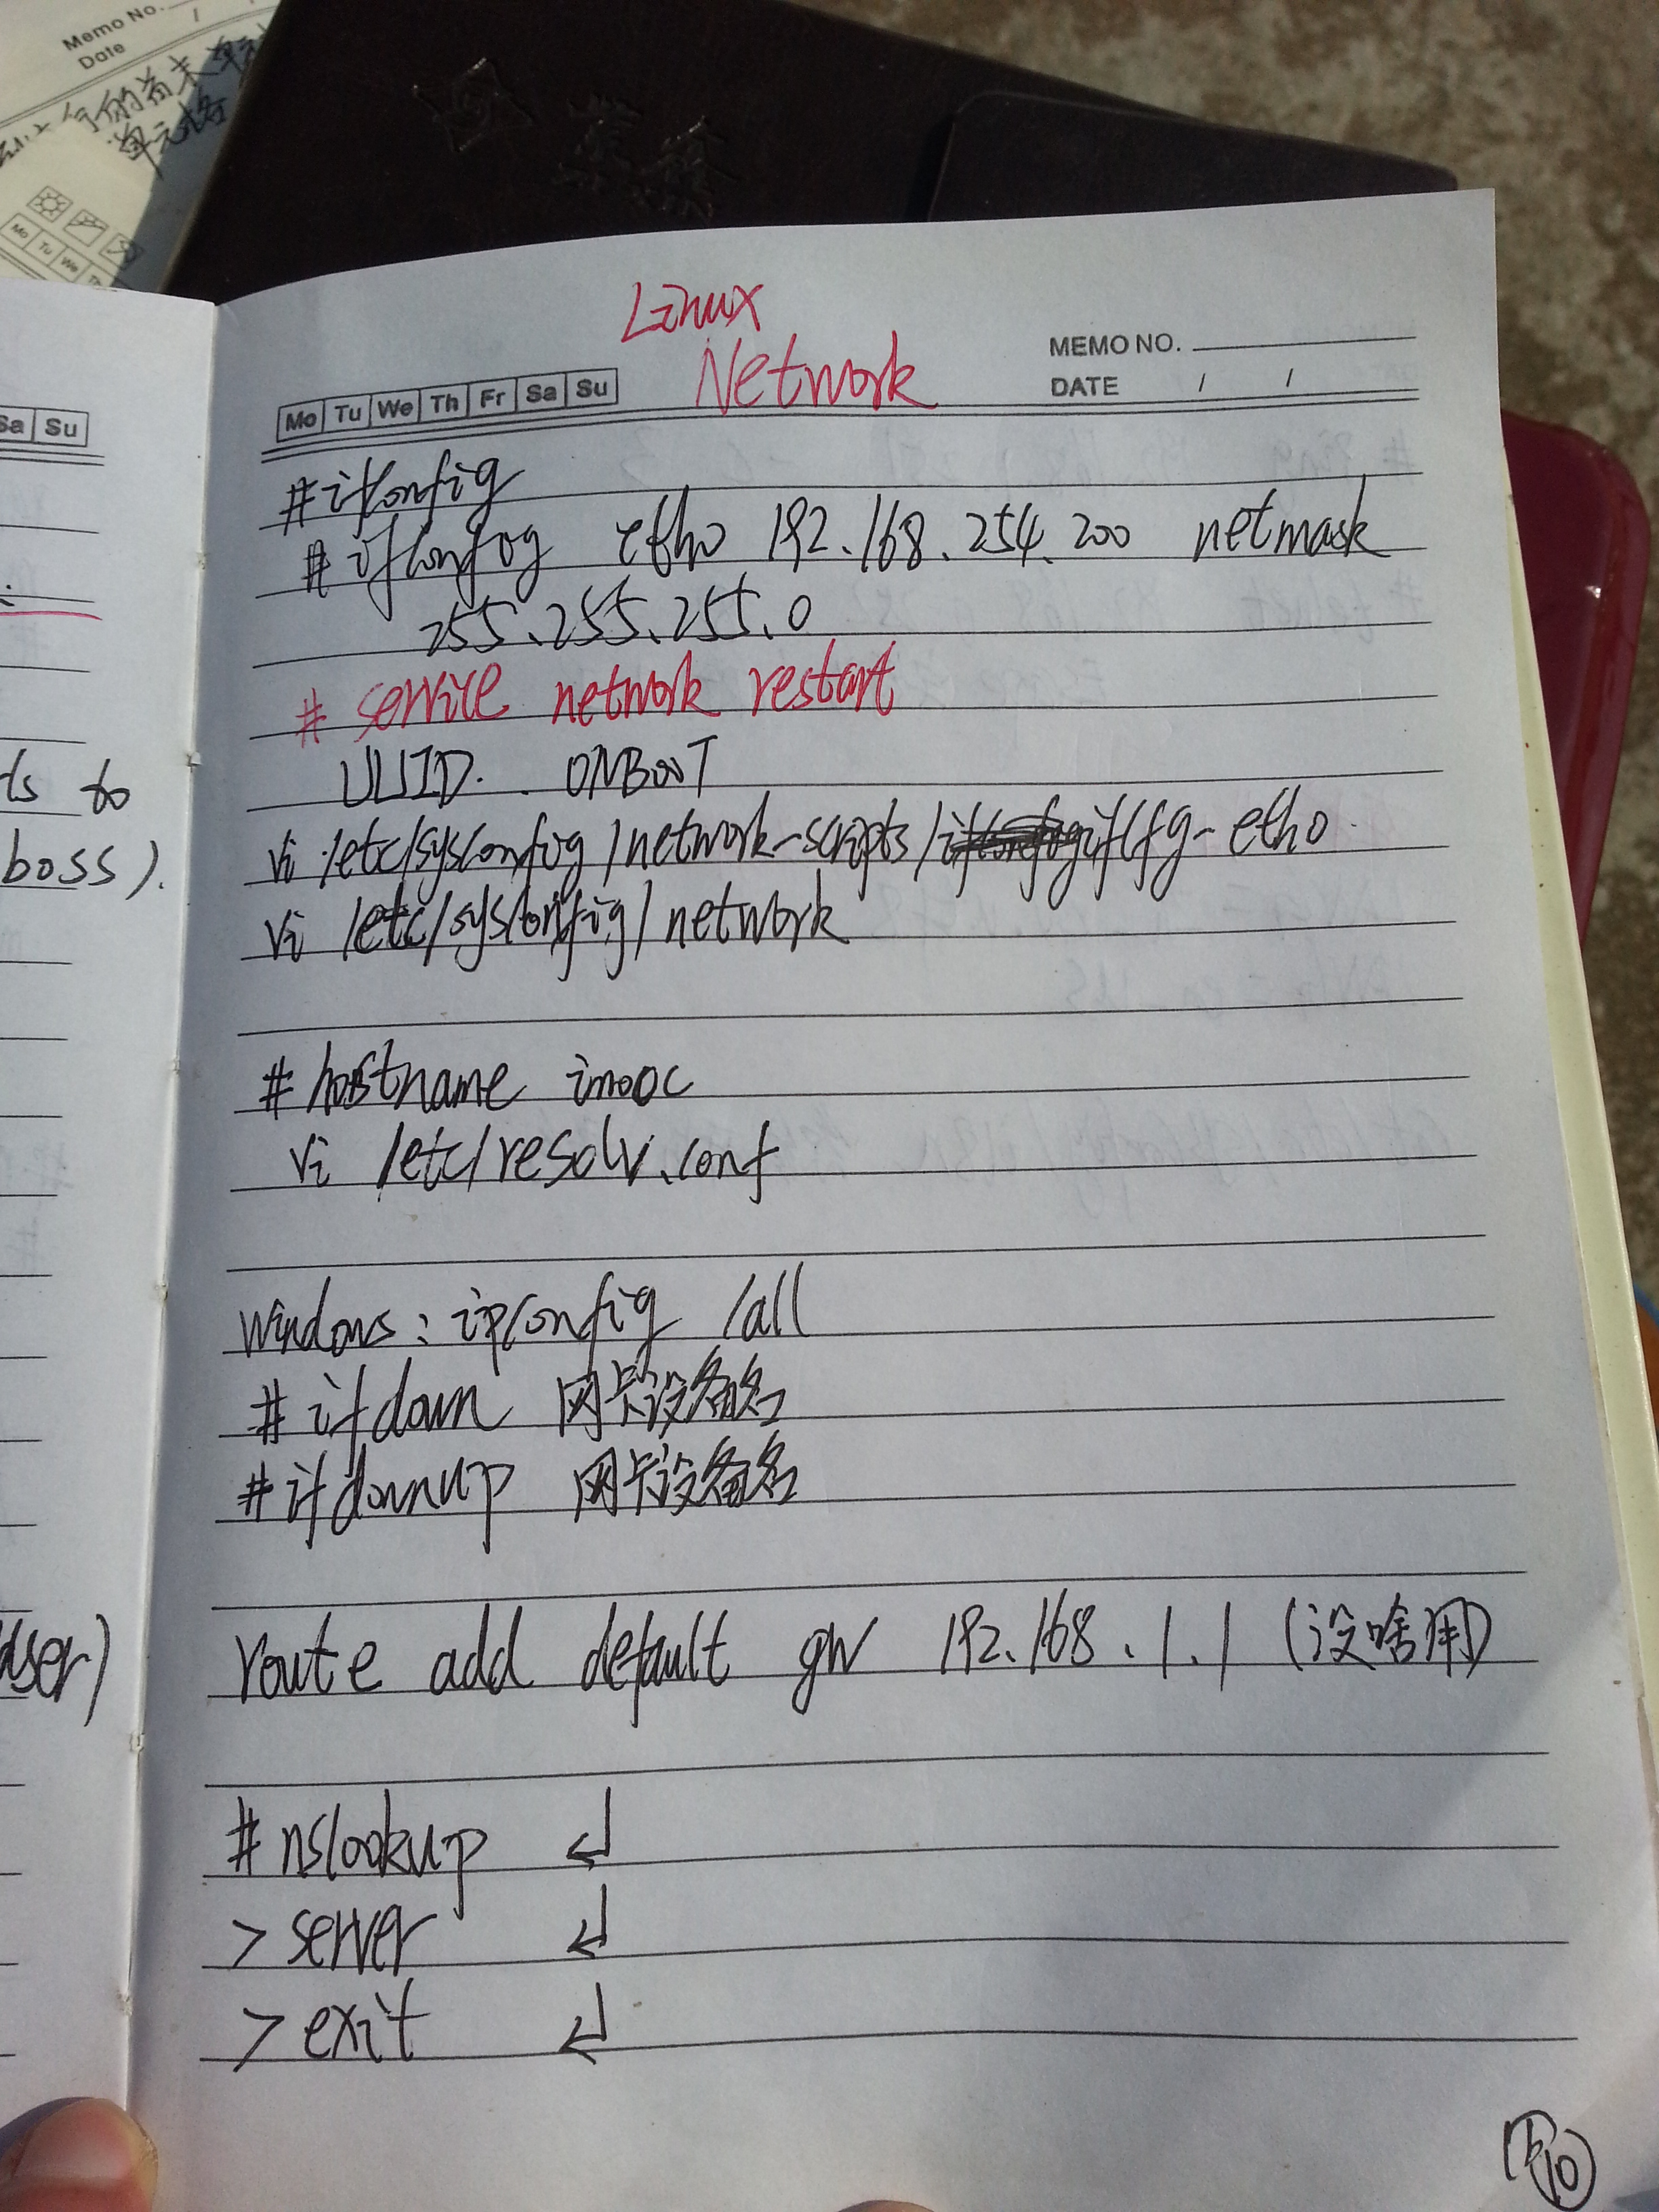 Memo No.
Date
单元格
Mo Tu We Th
Sa Su
ts to
boss).
user)
Linux
Network
MEMO NO.
DATE / /
Mo Tu We Th Fr Sa Su
#ifconfig
#ifconfig eth0 192.168.254.200 netmask
255.255.255.0
# service network restart
UUID. ONBOOT
vi /etc/sysconfig/network-scripts/ifcfg-eth0
vi /etc/sysconfig/network
# hostname imooc
vi /etc/resolv.conf
windows: ipconfig /all
# ifdown 网卡设备名
# ifdownup 网卡设备名
route add default gw 192.168.1.1 (没啥用)
# nslookup ↲
> server ↲
> exit ↲
10